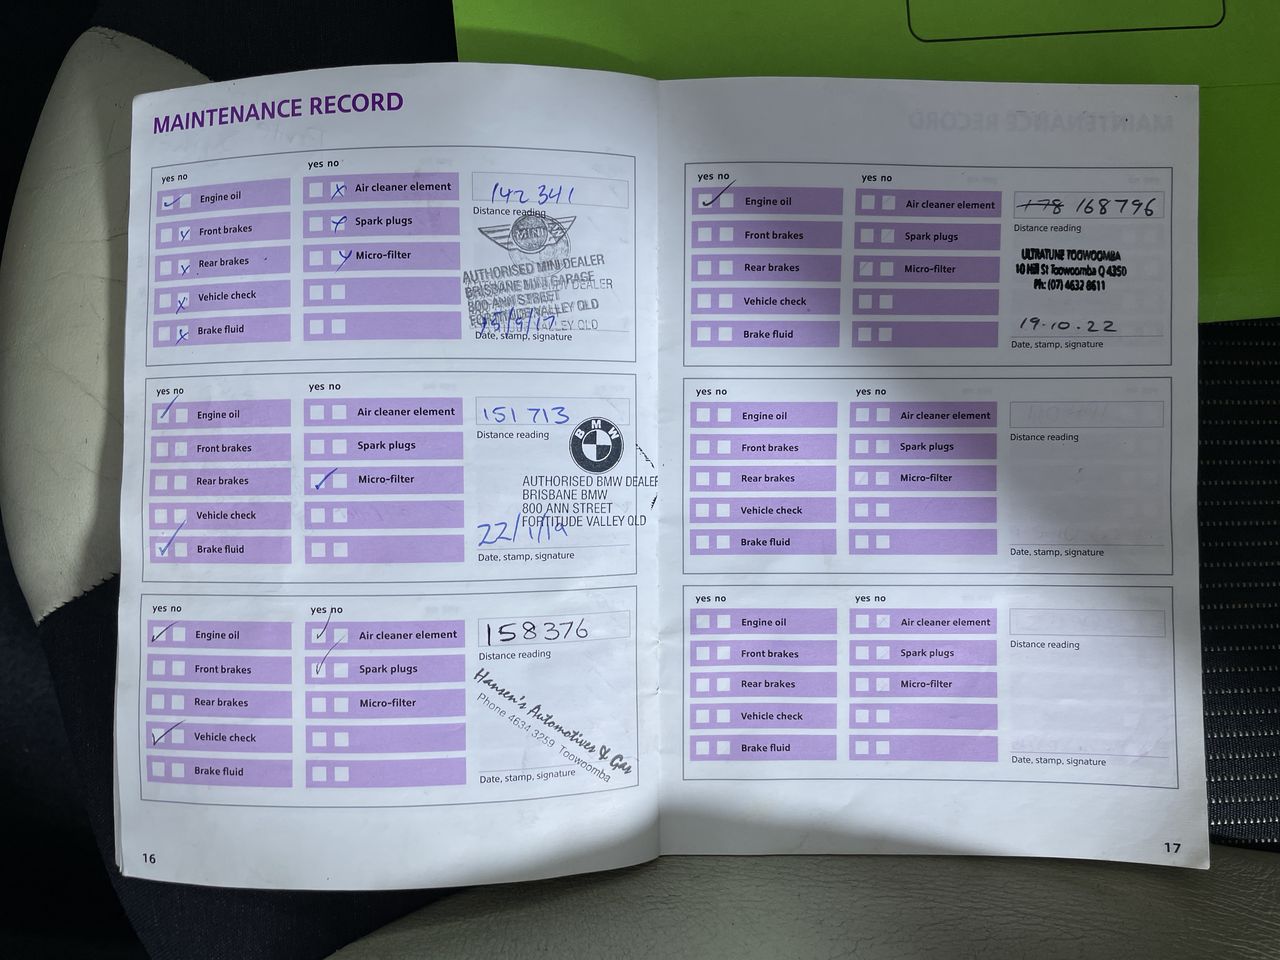 MAINTENANCE RECORD
yes no
yes no
Engine oil
Air cleaner element
142 341
Front brakes
Spark plugs
Distance reading
Rear brakes
Micro-filter
MINI
Vehicle check
Brake fluid
AUTHORISED MINI DEALER
BRISBANE MINI GARAGE
800 ANN STREET
FORTITUDE VALLEY QLD
Date, stamp, signature
yes no
yes no
Engine oil
Air cleaner element
151 713
Front brakes
Spark plugs
Distance reading
Rear brakes
Micro-filter
BMW
Vehicle check
Brake fluid
AUTHORISED BMW DEALER
BRISBANE BMW
800 ANN STREET
FORTITUDE VALLEY QLD
22/1/19
Date, stamp, signature
yes no
yes no
Engine oil
Air cleaner element
158376
Front brakes
Spark plugs
Distance reading
Rear brakes
Micro-filter
Vehicle check
Brake fluid
Hansen's Automotives & Gas
Phone 4634 3259 Toowoomba
Date, stamp, signature
16
yes no
yes no
Engine oil
Air cleaner element
178 168796
Front brakes
Spark plugs
Distance reading
Rear brakes
Micro-filter
Vehicle check
Brake fluid
ULTRATUNE TOOWOOMBA
10 Hill St Toowoomba Q 4350
Ph: (07) 4632 8611
19.10.22
Date, stamp, signature
yes no
yes no
Engine oil
Air cleaner element
Front brakes
Spark plugs
Distance reading
Rear brakes
Micro-filter
Vehicle check
Brake fluid
Date, stamp, signature
yes no
yes no
Engine oil
Air cleaner element
Front brakes
Spark plugs
Distance reading
Rear brakes
Micro-filter
Vehicle check
Brake fluid
Date, stamp, signature
17